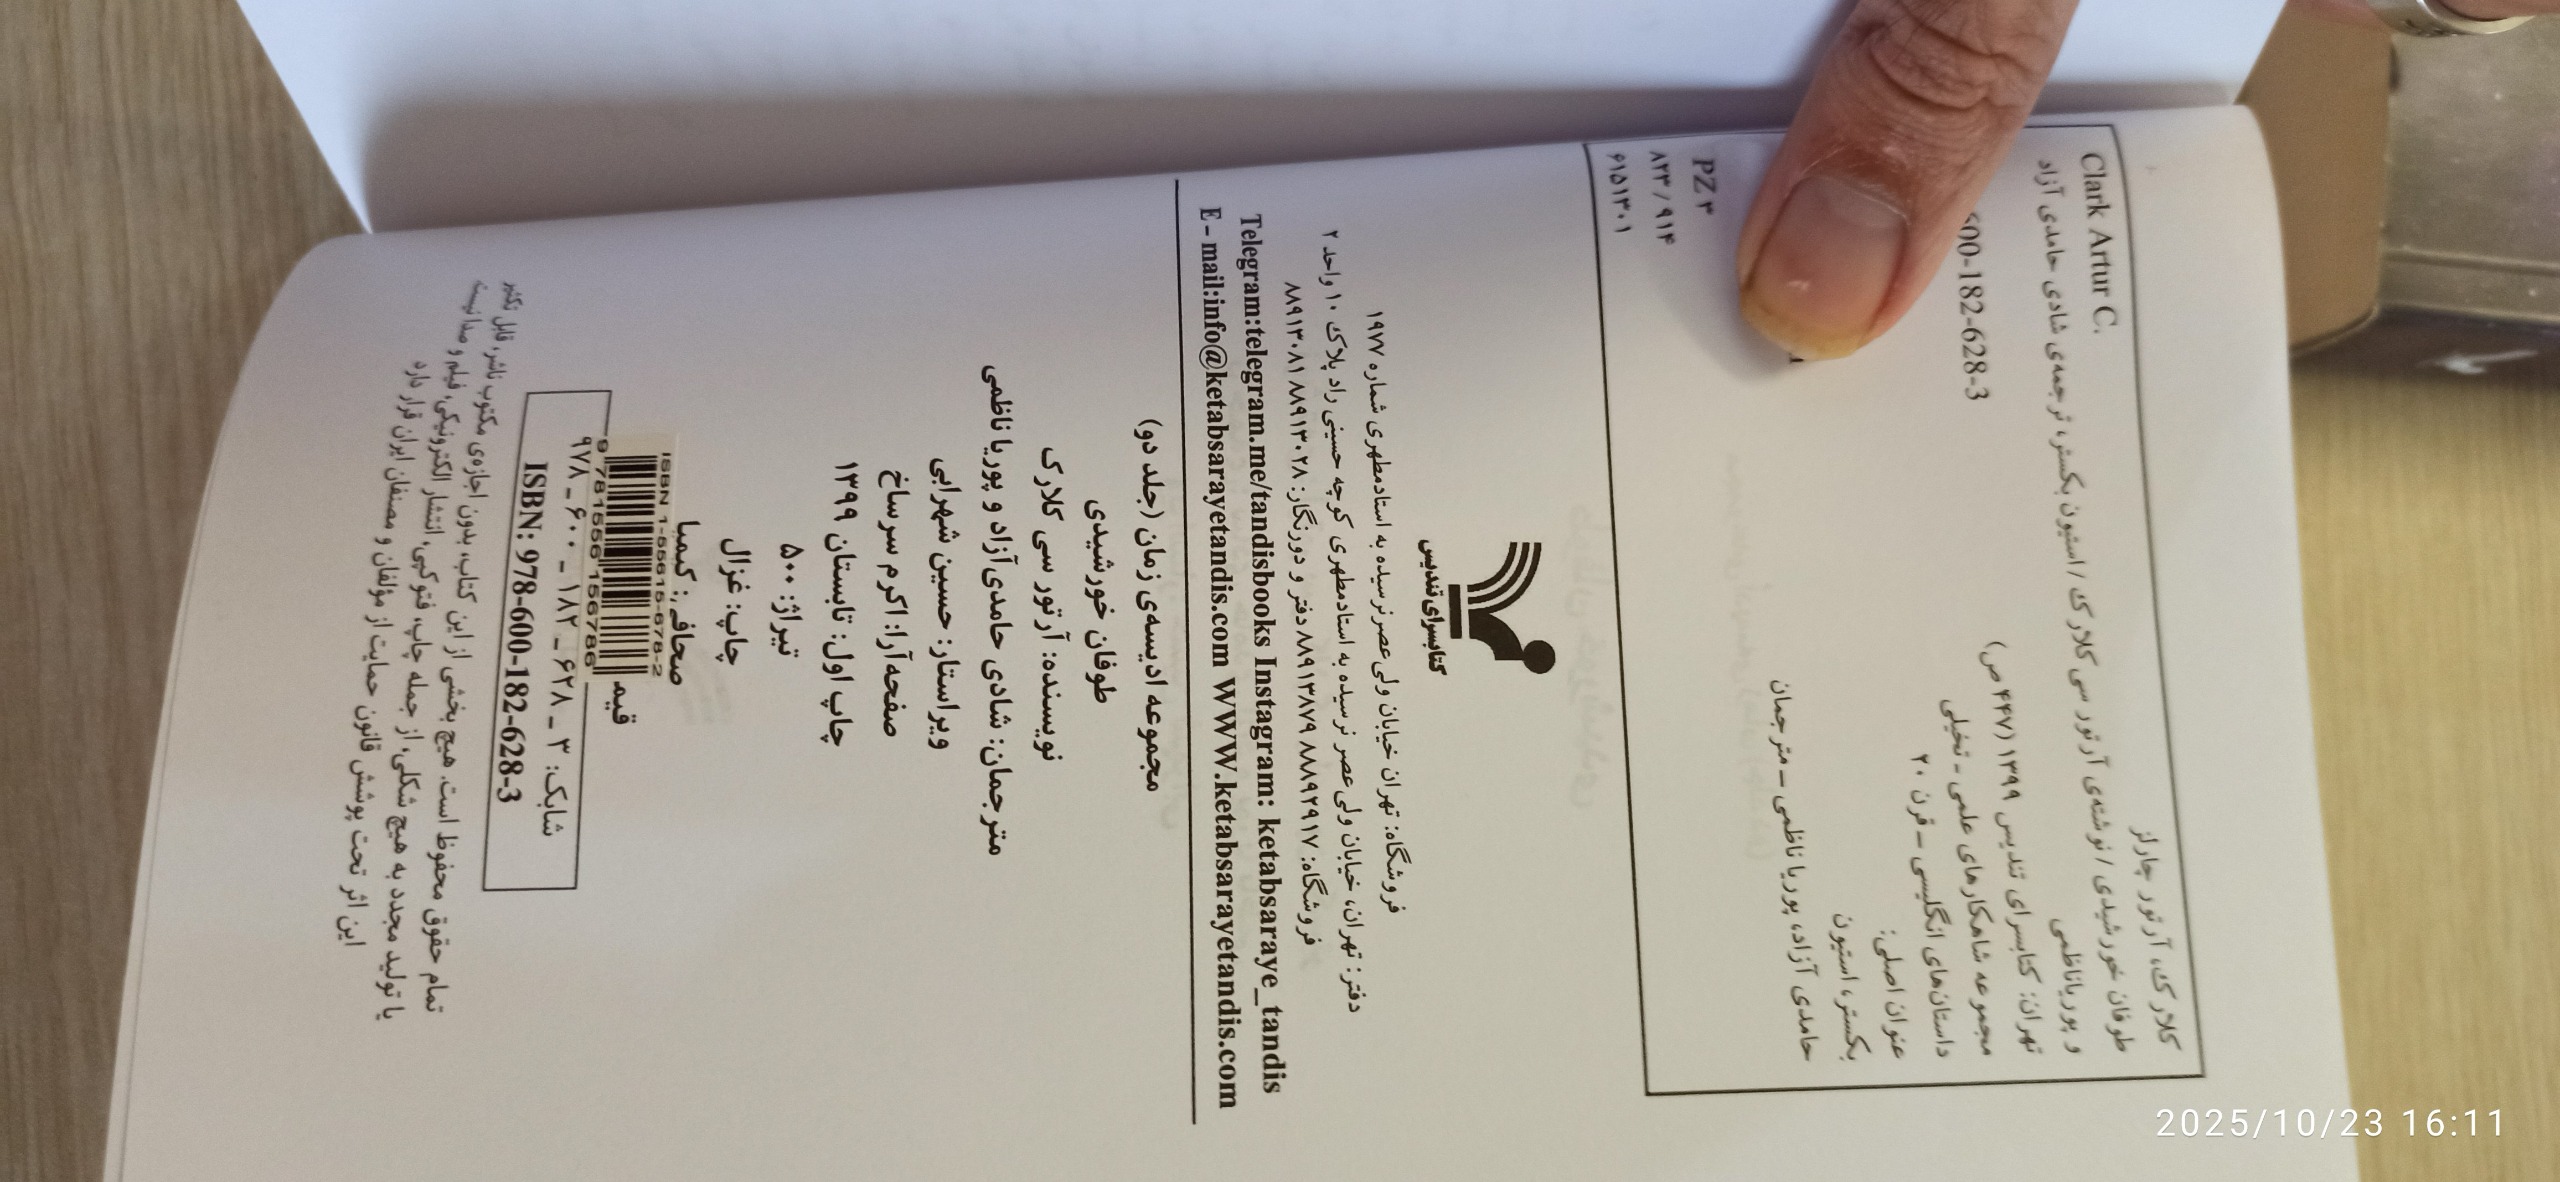 کلارک، آرتور چارلز
Clark Artur C.
طوفان خورشیدی / نوشته‌ی آرتور سی کلارک / استیون بکستر، ترجمه‌ی شادی حامدی آزاد
و پوریا ناظمی
تهران: کتابسرای تندیس ۱۳۹۹ (۴۴۷ ص)
00-182-628-3
مجموعه شاهکارهای علمی - تخیلی
داستان‌های انگلیسی - قرن ۲۰
عنوان اصلی:
بکستر، استیون
حامدی آزاد، پوریا ناظمی - مترجمان
PZ ۳
۸۲۳/۹۱۴
۶۱۵۱۳۰۱
کتابسرای تندیس
فروشگاه: تهران خیابان ولی‌عصر نرسیده به استادمطهری شماره ۱۹۷۷
دفتر: تهران، خیابان ولی عصر نرسیده به استادمطهری کوچه حسینی راد پلاک ۱۰ واحد ۲
فروشگاه: ۸۸۸۹۲۹۱۷ ۸۸۹۱۳۸۷۹ دفتر و دورنگار: ۸۸۹۱۳۰۲۸ ۸۸۹۱۳۰۸۱
Telegram:telegram.me/tandisbooks Instagram: ketabsaraye_tandis
E - mail:info@ketabsarayetandis.com WWW.ketabsarayetandis.com
مجموعه ادیسه‌ی زمان (جلد دو)
طوفان خورشیدی
نویسنده: آرتور سی کلارک
مترجمان: شادی حامدی‌آزاد و پوریا ناظمی
ویراستار: حسین شهرابی
صفحه‌آرا: اکرم سرساخ
چاپ اول: تابستان ۱۳۹۹
تیراژ: ۵۰۰
چاپ: غزال
صحافی: کیمیا
قیم
ISBN 1-55615-678-2
9 781556 156786
شابک: ۳ - ۶۲۸ - ۱۸۲ - ۶۰۰ - ۹۷۸
ISBN: 978-600-182-628-3
تمام حقوق محفوظ است. هیچ بخشی از این کتاب، بدون اجازه‌ی مکتوب ناشر، قابل تکثیر
یا تولید مجدد به هیچ شکلی، از جمله چاپ، فتوکپی، انتشار الکترونیکی، فیلم و صدا نیست
این اثر تحت پوشش قانون حمایت از مؤلفان و مصنفان ایران قرار دارد
2025/10/23 16:11